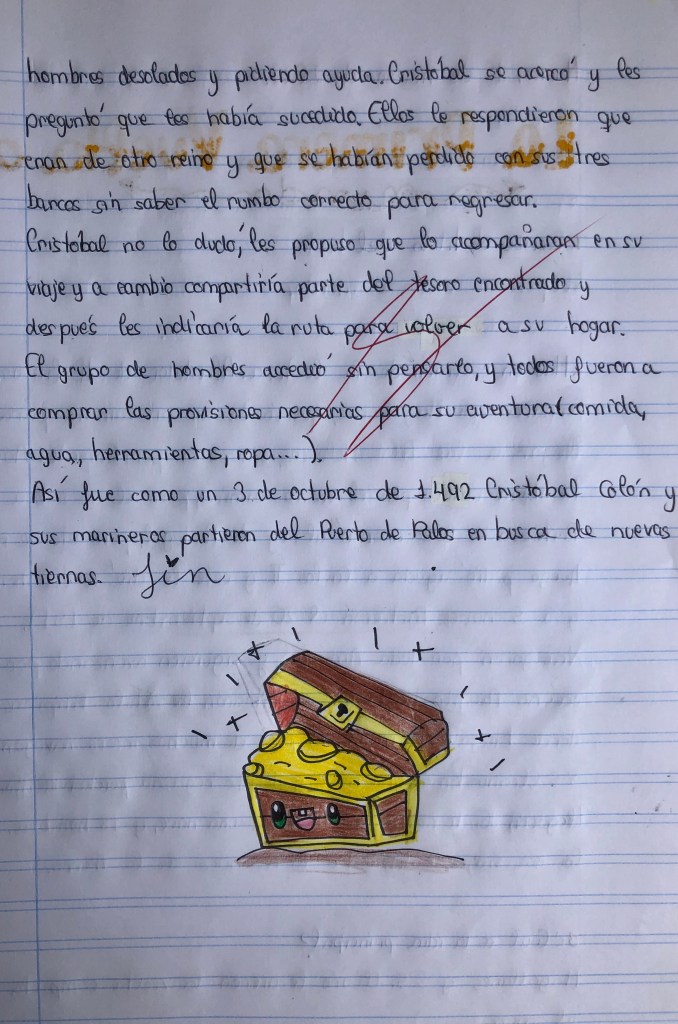 hombres desolados y pidiendo ayuda. Cristóbal se acercó y les
preguntó que les había sucedido. Ellos le respondieron que
eran de otro reino y que se habían perdido con sus tres
barcos sin saber el rumbo correcto para regresar.
Cristóbal no lo dudó, les propuso que lo acompañaran en su
viaje y a cambio compartiría parte del tesoro encontrado y
después les indicaría la ruta para volver a su hogar.
El grupo de hombres accedió sin pensarlo, y todos fueron a
comprar las provisiones necesarias para su aventura (comida,
agua, herramientas, ropa...).
Así fue como un 3 de octubre de 1.492 Cristóbal Colón y
sus marineros partieron del Puerto de Palos en busca de nuevas
tierras. Fin